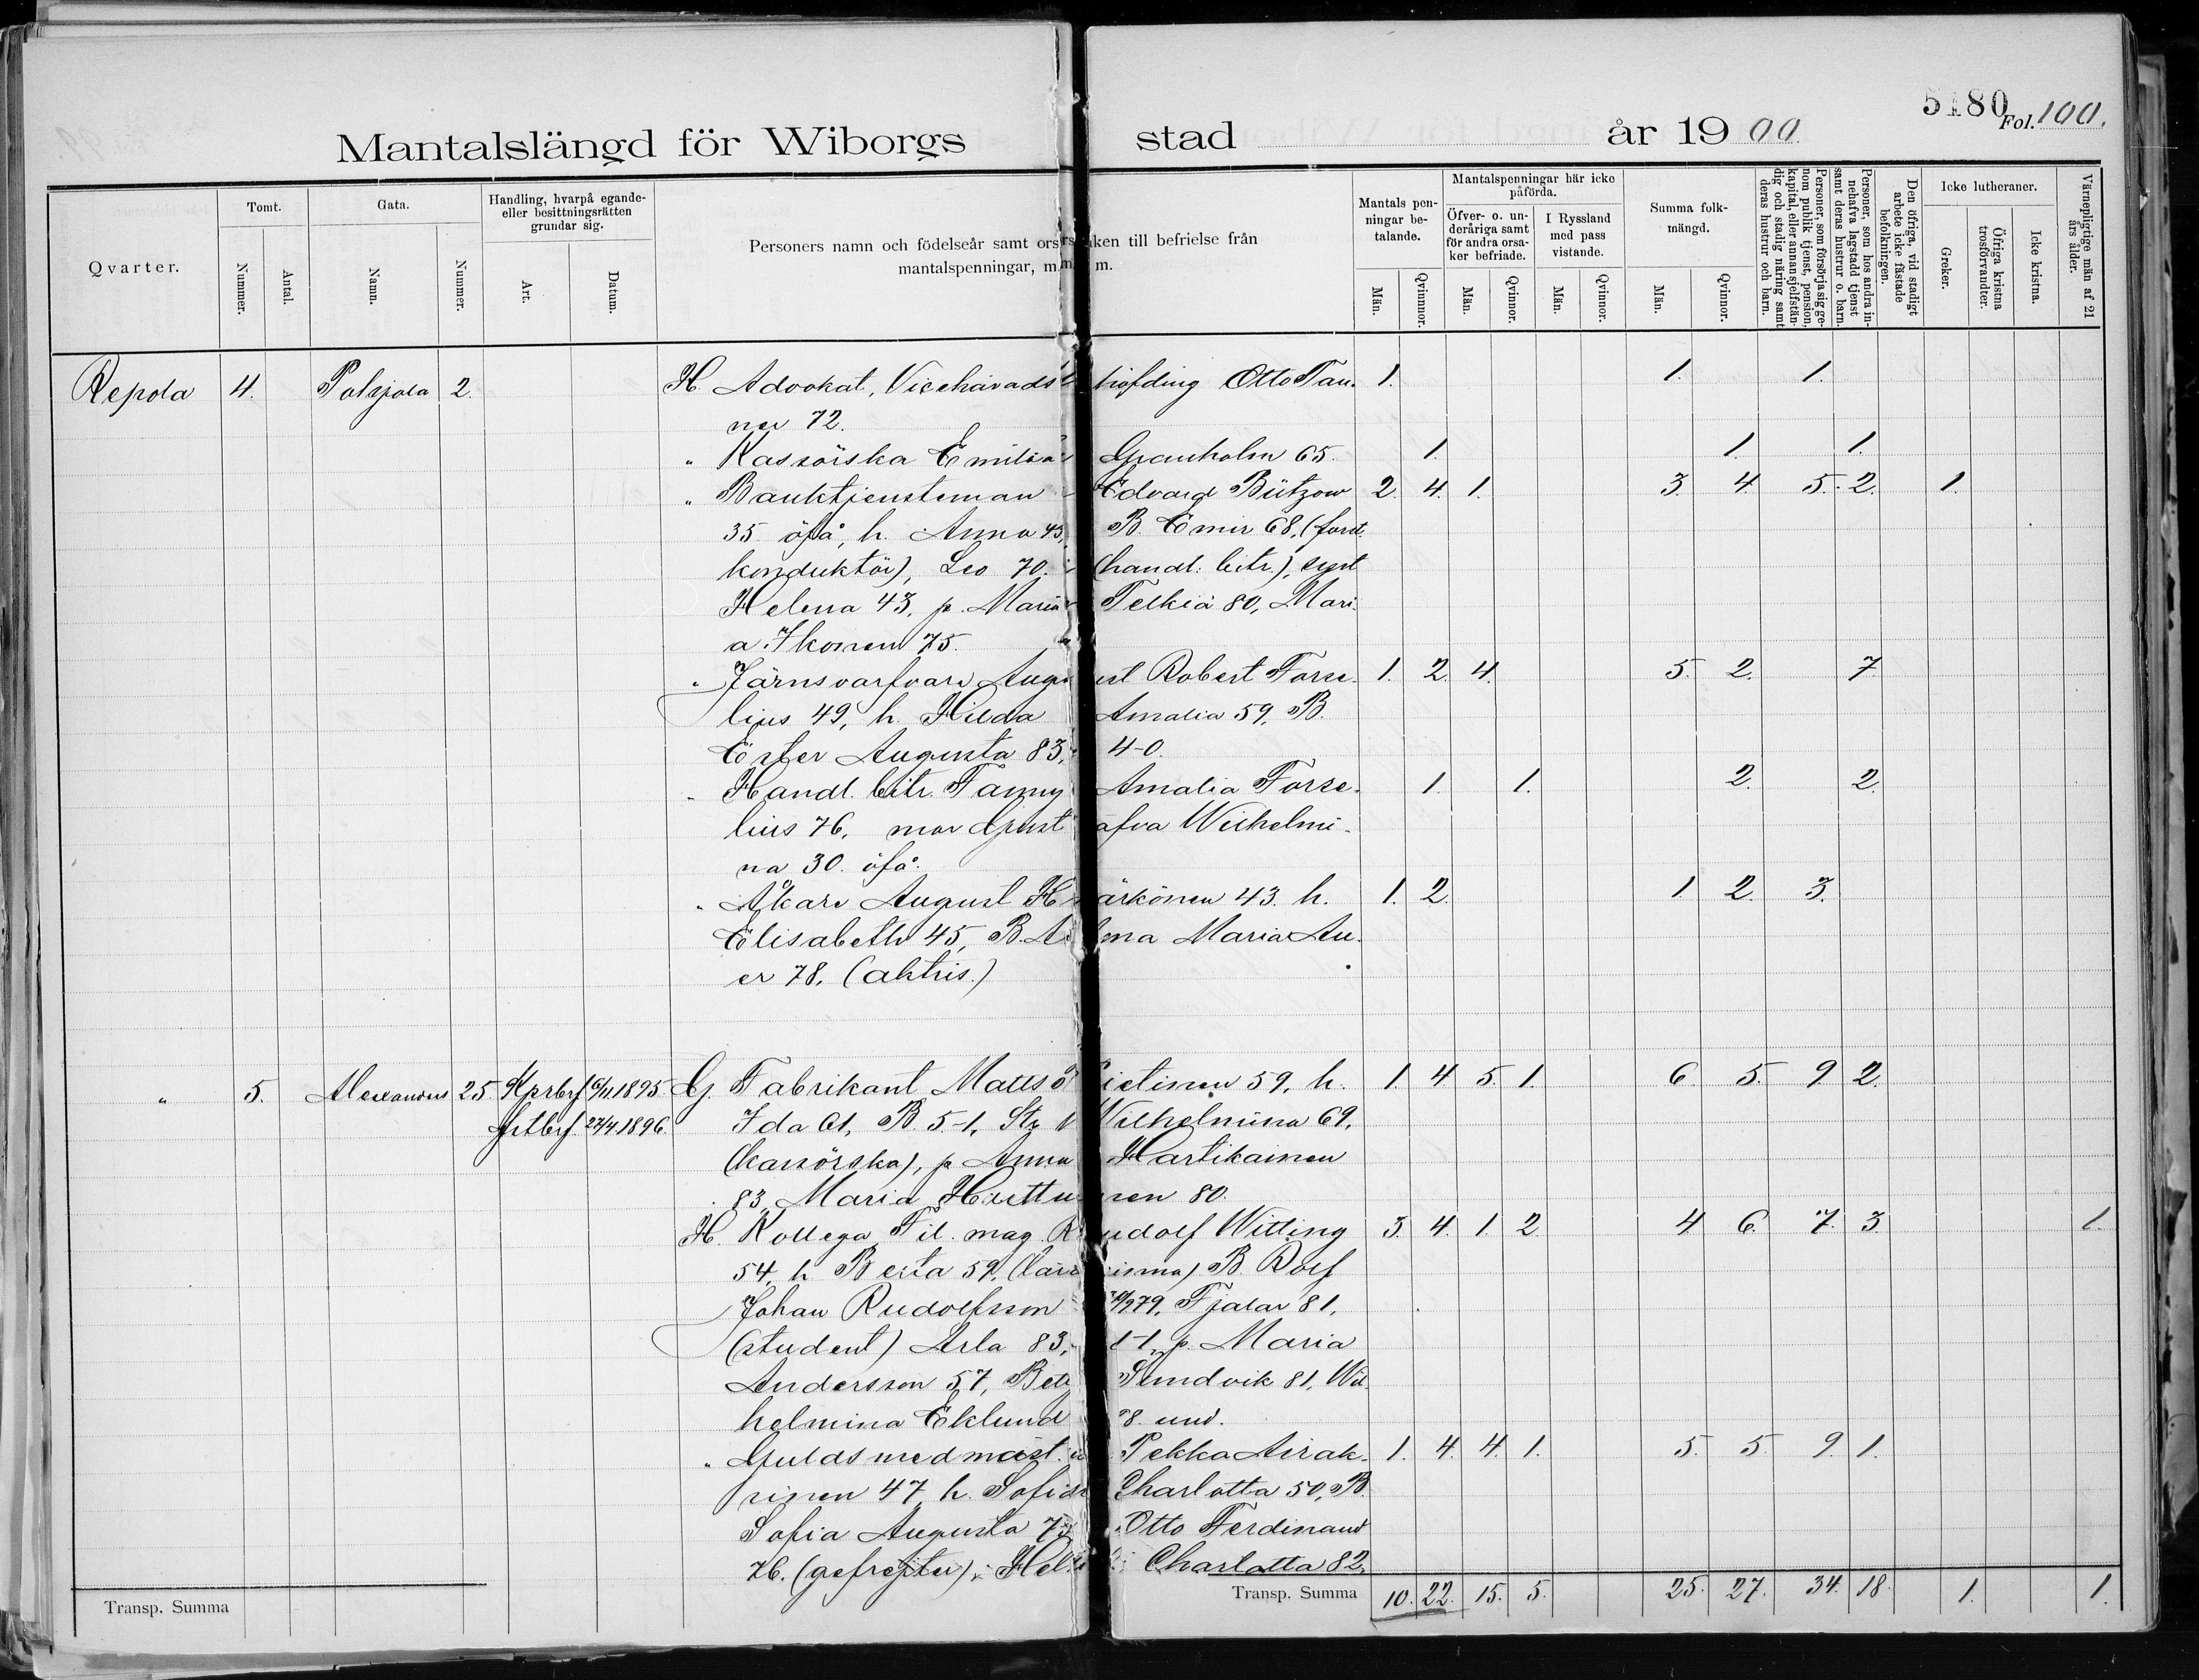 5180 Fol. 100.
Mantalslängd för Wiborgs stad år 1900
Qvarter.
Tomt.
Nummer.
Antal.
Gata.
Namn.
Nummer.
Handling, hvarpå egande- eller besittningsrätten grundar sig.
Art.
Datum.
Personers namn och födelseår samt orsaken till befrielse från
mantalspenningar, m. m.
Mantals penningar betalande.
Män.
Qvinnor.
Mantalspenningar här icke påförda.
Öfver- o. underåriga samt för andra orsaker befriade.
Män.
Qvinnor.
I Ryssland med pass vistande.
Män.
Qvinnor.
Summa folkmängd.
Män.
Qvinnor.
Personer, som försörja sig genom publik tjenst, pension, kapital, eller annan sjelfständig och stadig näring samt deras hustrur och barn.
Personer, som hos andra innehafva lagstadd tjenst samt deras hustrur o. barn.
Den öfriga, vid stadigt arbete icke fästade befolkningen.
Icke lutheraner.
Greker.
Öfriga kristna trosförvandter.
Icke kristna.
Värnepligtige män af 21 års ålder.
Repola 4. Pohjola 2. H. Advokat, Vicehäradshöfding Otto Tan- 1. 1. 1.
ner 72.
" Kassörska Emilia Granholm 65. 1. 1. 1.
" Banktjensteman Edvard Bützow 2. 4. 1. 3. 4. 5. 2. 1.
35 öfå, h. Anna 43, B. Emir 68, (forst.
konduktör), Leo 70. (handl. bitr.), syst
Helena 43, p. Maria Telkiä 80, Mari-
a Ikonen 75.
" Järnsvarfvare August Robert Forse- 1. 2. 4. 5. 2. 7.
lius 49, h. Hilda Amalia 59, B.
Ester Augusta 83, 4-0.
" Handl. bitr. Fanny Amalia Forse- 1. 1. 2. 2.
lius 76, mor Gustafva Wilhelmi-
na 30. öfå.
" Åkare August Härkönen 43. h. 1. 2. 1. 2. 3.
Elisabeth 45, B. Alma Maria Au-
er 78, (aktris.)
" 5. Alexanders 25. Kprbrf 6/11.1895. G. Fabrikant Matts Pietinen 59, h. 1 4 5. 1. 6 5. 9 2.
Fstbrf. 27/4.1896. Ida 61, B. 5-1, Str Wilhelmina 69,
(kassörska), p Anna Hartikainen
83, Maria Huttunen 80.
H. Kollega, Fil. mag. Rudolf Witting 3. 4. 1. 2. 4 6. 7. 3. 1.
54, h Berta 59, B. Rolf
Johan Rudolfsson 79, Fjalar 81,
(student) Arla 83, 1-1, p. Maria
Andersson 57, Sundvik 81, Wil-
helmina Eklund und.
" Guldsmedmäst. Pekka Airak- 1. 4. 4. 1. 5. 5. 9. 1.
sinen 47, h. Sofia Charlotta 50, B.
Sofia Augusta Otto Ferdinand
76. (gefrejter), Charlotta 82,
Transp. Summa Transp. Summa 10. 22. 15. 5. 25. 27. 34. 18. 1. 1.